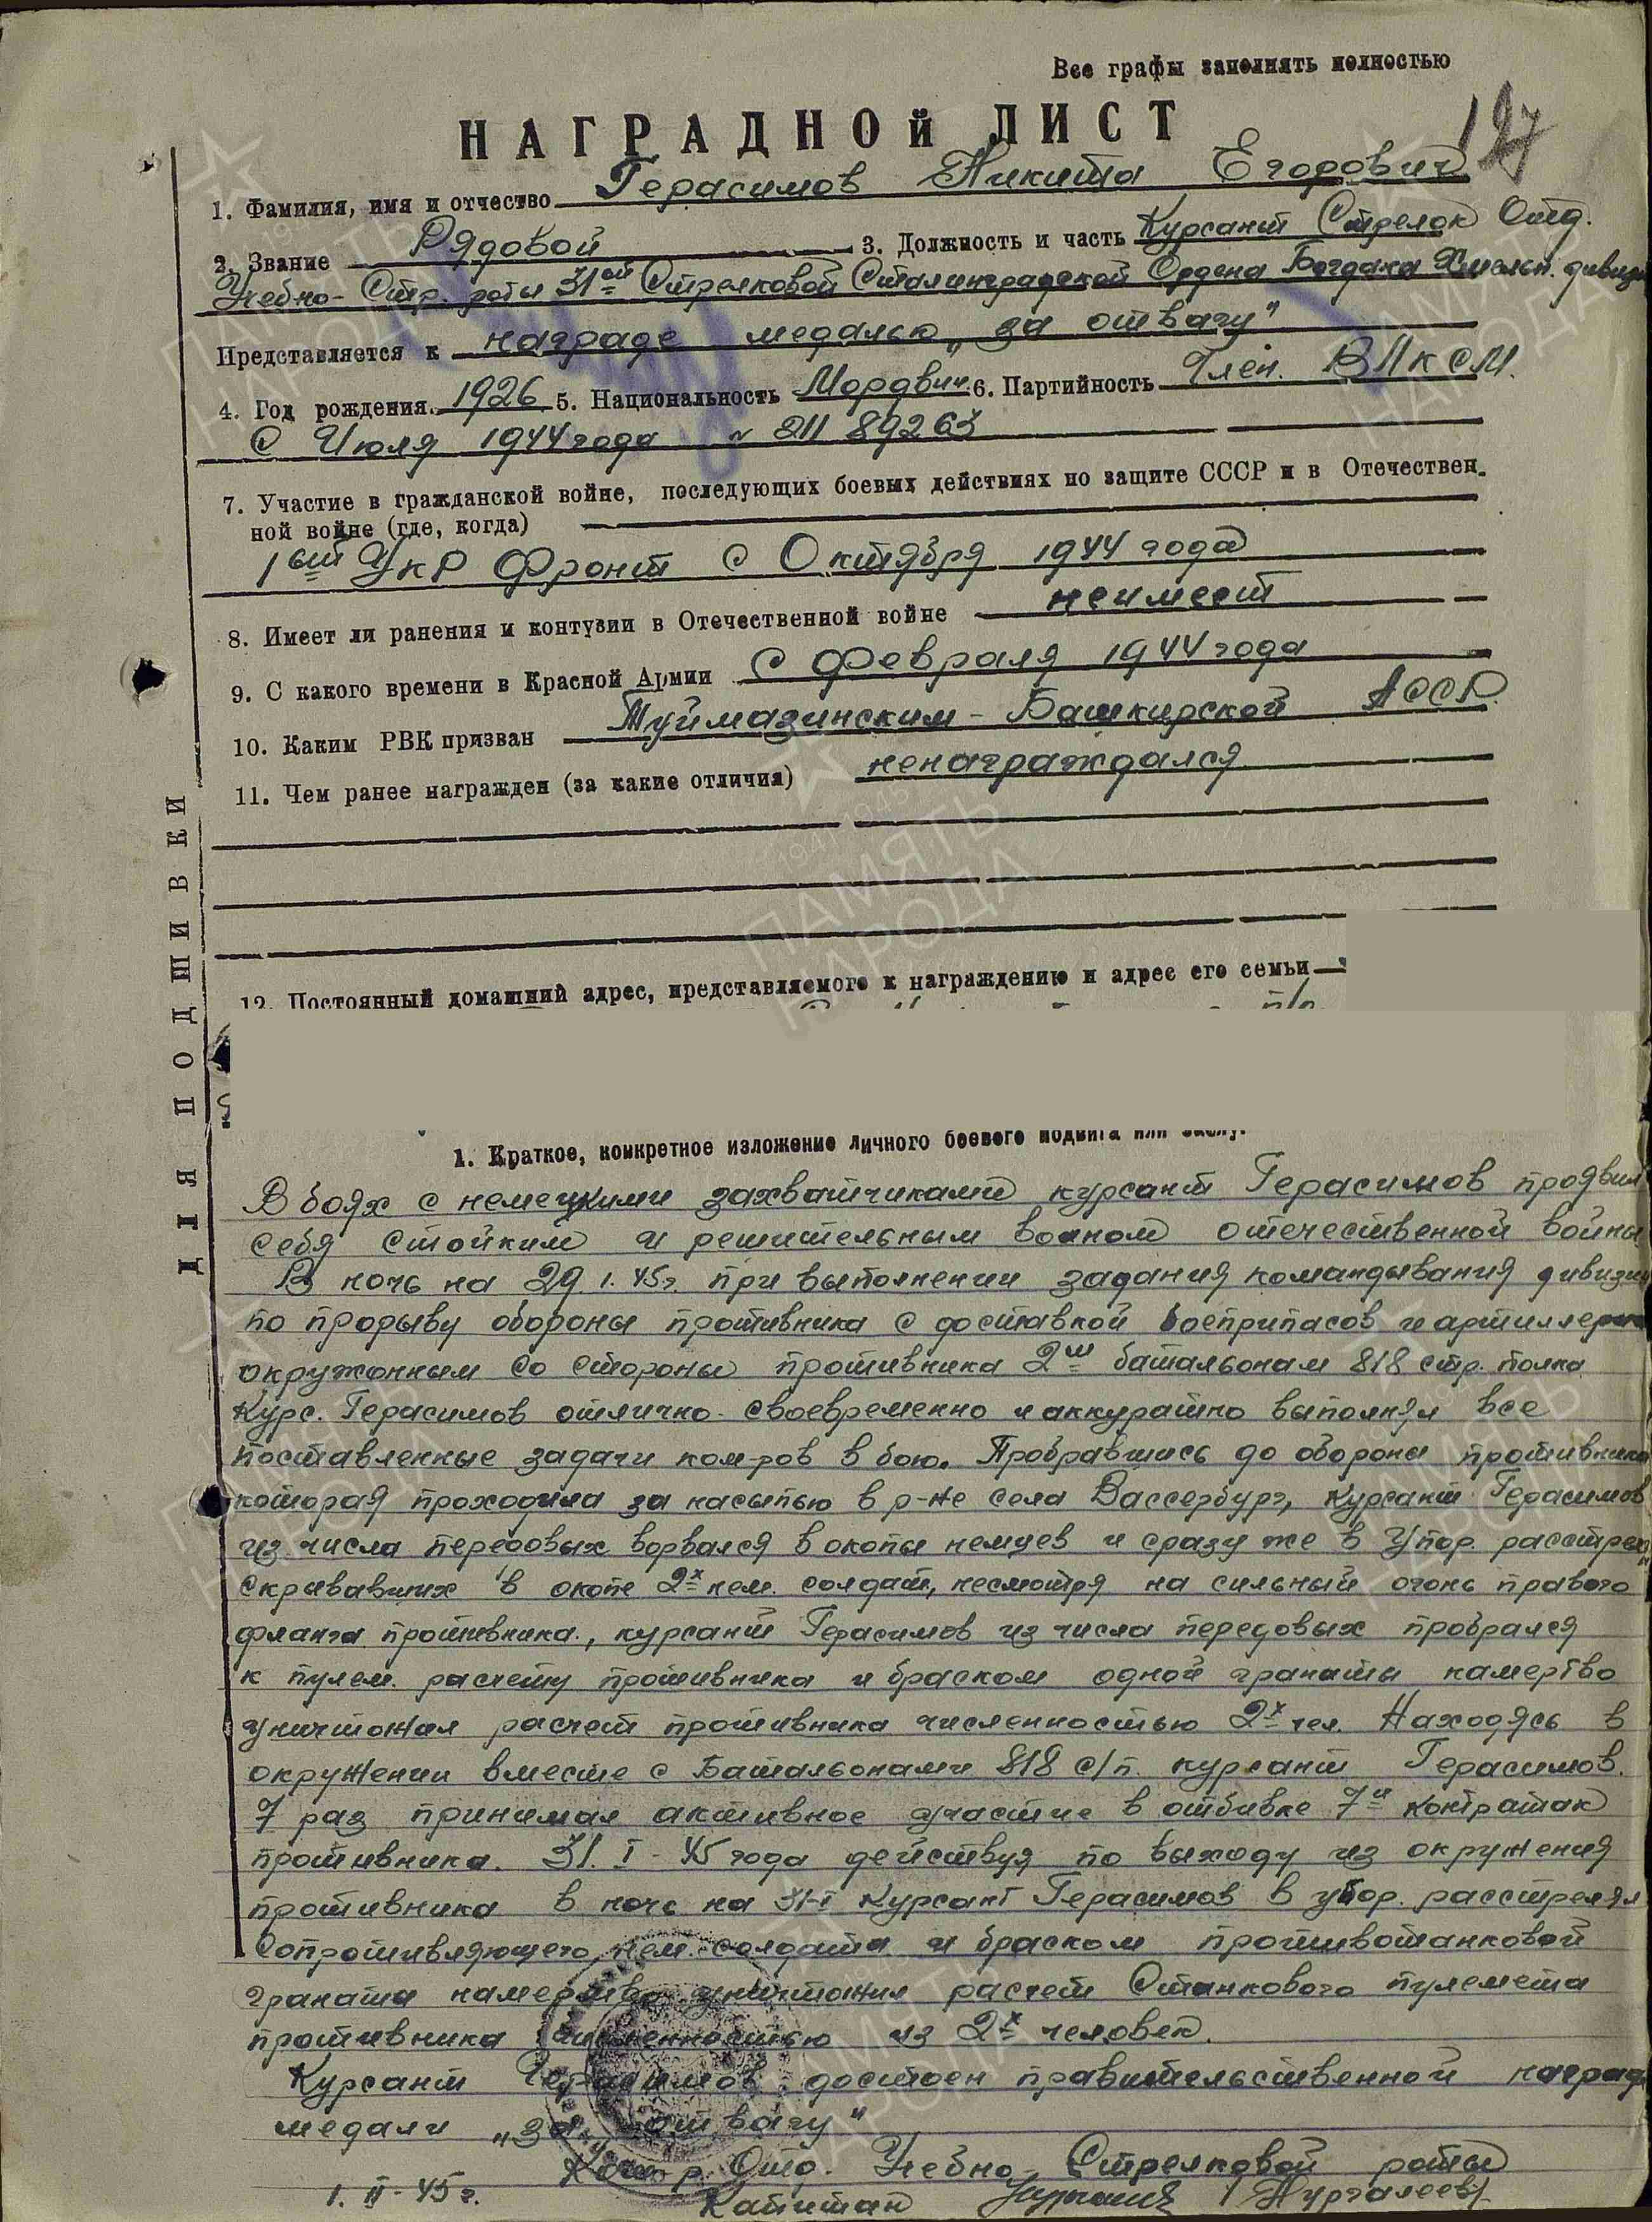 Все графы заполнять полностью
127
НАГРАДНОЙ ЛИСТ
1. Фамилия, имя и отчество Герасимов Никита Егорович
2. Звание Рядовой 3. Должность и часть Курсант Стрелок Отд.
Учебно-Стр. роты 31ой Стрелковой Сталинградской Ордена Богдана Хмельн. дивизи
Представляется к награде медалью „за отвагу"
4. Год рождения 1926 5. Национальность Мордвин 6. Партийность Член. ВЛКСМ.
С Июля 1944 года № 21189263
7. Участие в гражданской войне, последующих боевых действиях по защите СССР и в Отечествен-
ной войне (где, когда)
1ый Укр Фронт с Октября 1944 года
8. Имеет ли ранения и контузии в Отечественной войне неимеет
9. С какого времени в Красной Армии С Февраля 1944 года
10. Каким РВК призван Туймазинским - Башкирской АССР.
11. Чем ранее награжден (за какие отличия) ненаграждался
12. Постоянный домашний адрес, представляемого к награждению и адрес его семьи
ДЛЯ ПОДШИВКИ
1. Краткое, конкретное изложение личного боевого подвига или
В боях с немецкими захватчиками курсант Герасимов проявил
себя стойким и решительным воином отечественной войны
В ночь на 29.1.45г. при выполнении задания командывания дивизи
по прорыву обороны противника с доставкой боеприпасов и артиллерии
окружонным со стороны противника 2м батальонам 818 стр. полка
Курс. Герасимов отлично-своевременно и аккуратно выполнял все
поставленные задачи ком-ров в бою. Пробравшись до обороны противника
которая проходила за насыпью в р-не села Вассербург, курсант Герасимов
из числа передовых ворвался в окопы немцев и сразу же в упор. расстрел
скрывавших в окопе 2х нем. солдат, несмотря на сильный огонь правого
фланга противника, курсант Герасимов из числа передовых пробрался
к пулем. расчету противника и браском одной гранаты намертво
уничтожил расчет противника численностью 2х чел. Находясь в
окружении вместе с Батальонами 818 с/п. курсант Герасимов.
7 раз принимал активное участие в отбивке 7и контратак
противника. 31. I - 45 года действуя по выходу из окружения
противника в ночь на 31-I Курсант Герасимов в упор. расстрелял
Сопротивляющего нем. солдата и браском противотанковой
граната намертво уничтожил расчет Станкового пулемета
противника численностью из 2х человек.
Курсант Герасимов достоен правительственной наград
медали „За отвагу"
Ком-р. Отд. Учебно-Стрелковой роты
1. II - 45 г. Капитан Нургалеев
ПАМЯТЬ НАРОДА